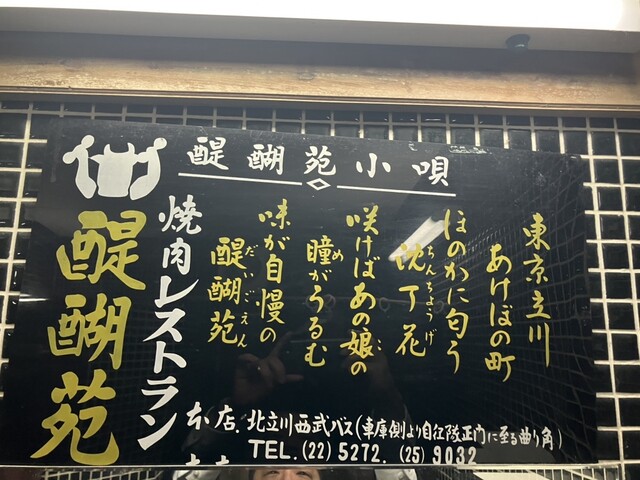 醍醐苑小唄
東京立川
あけぼの町
ほのかに匂う
沈丁花
ちんちょうげ
咲けばあの娘の
こ
瞳がうるむ
め
味が自慢の
醍醐苑
だいごえん
焼肉レストラン
醍醐苑
本店. 北立川西武バス(車庫側より自衛隊正門に至る曲り角)
TEL. (22) 5272. (25) 9032